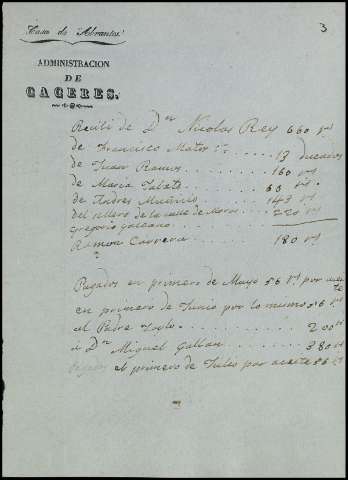 Casa de Abrantes.
3
ADMINISTRACION
DE
CACERES.
Recibi de Dn Nicolas Rey 660 rs
de Francisco Mateos 13 ducados
de Juan Ramos 160 rs
de Maria 60 rs
de Andres 143 rs
del sillero de la calle de Moros 220 rs
Gregorio Galeano
Ramon Carrera 180 rs
Pagados en primero de Mayo 56 rs por
en primero de Junio por lo mismo 56 rs
al Padre 200 rs
á Dn Miguel Gallan 380 rs
Pagados el primero de Julio por aceite 56 rs